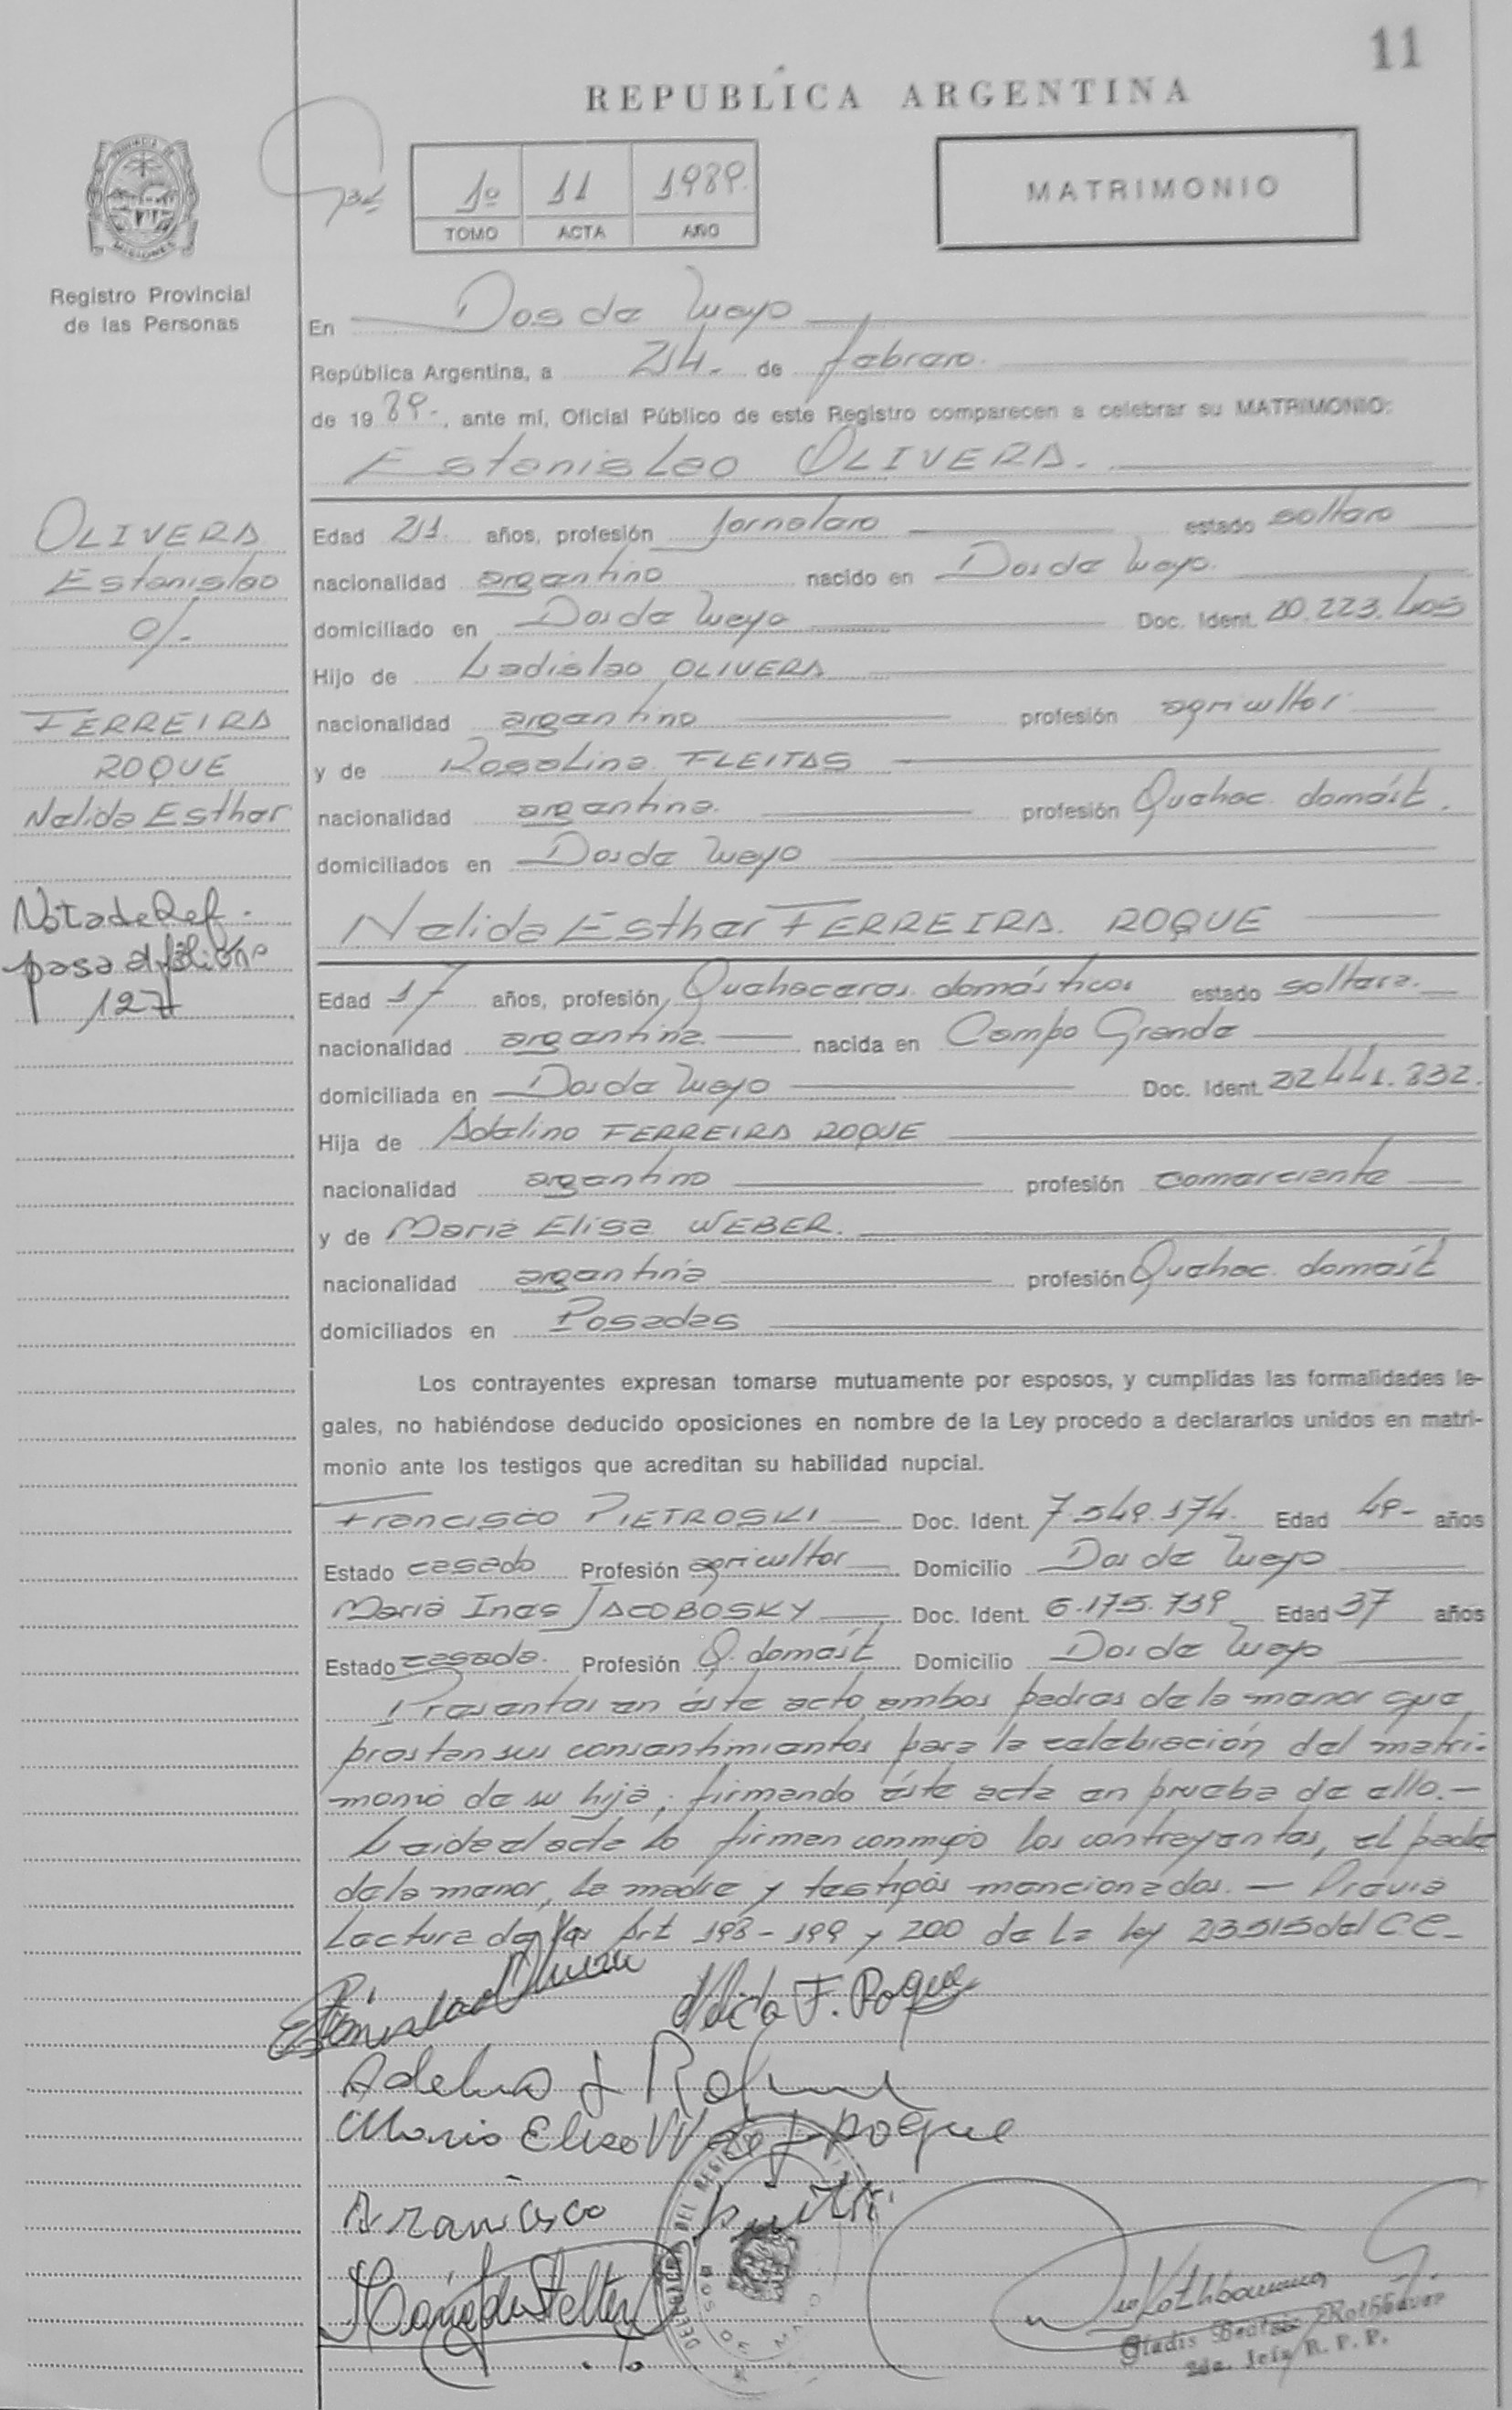 11
REPUBLICA ARGENTINA
1º 11 1989.
TOMO ACTA AÑO
MATRIMONIO
PROVINCIA DE MISIONES
Registro Provincial
de las Personas
En Dos de Mayo
República Argentina, a 24. de febrero.
de 19 89.-, ante mí, Oficial Público de este Registro comparecen a celebrar su MATRIMONIO:
Estanislao OLIVERA.
OLIVERA
Estanislao
c/.-
FERREIRA
ROQUE
Nelida Esther
Nota de Ref.-
pasa al folio Nº
127
Edad 21. años, profesión Jornalero estado soltero
nacionalidad argentino nacido en Dos de Mayo.
domiciliado en Dos de Mayo Doc. Ident. 20.223.405
Hijo de Ladislao OLIVERA
nacionalidad argentino profesión agricultor
y de Rosalina FLEITAS
nacionalidad argentina. profesión Quehac. domést.
domiciliados en Dos de Mayo
Nelida Esther FERREIRA ROQUE
Edad 17 años, profesión Quehaceres domésticos estado soltera.
nacionalidad argentina. nacida en Campo Grande
domiciliada en Dos de Mayo Doc. Ident. 22.441.832.
Hija de Adelino FERREIRA ROQUE
nacionalidad argentino profesión comerciante
y de Maria Elisa WEBER.
nacionalidad argentina profesión Quehac. domést
domiciliados en Posadas
Los contrayentes expresan tomarse mutuamente por esposos, y cumplidas las formalidades le-
gales, no habiéndose deducido oposiciones en nombre de la Ley procedo a declararlos unidos en matri-
monio ante los testigos que acreditan su habilidad nupcial.
Francisco PIETROSKI Doc. Ident. 7.549.174. Edad 49- años
Estado casado Profesión agricultor Domicilio Dos de Mayo
Maria Ines JACOBOSKY Doc. Ident. 6.175.739 Edad 37 años
Estado casada. Profesión Q. domést Domicilio Dos de Mayo
Presentes en éste acto ambos padres de la menor que
prestan sus consentimientos para la celebración del matri-
monio de su hija; firmando éste acta en prueba de ello.-
Leida el acta lo firman conmigo los contrayentes, el padre
de la menor, la madre y testigos mencionados.- Previa
Lectura de los Art 198-199 y 200 de la ley 23515 del C C.-
Estanislao Olivera Nelida F. Roque
Adelino F Roque
Maria Elisa W de F Roque
Francisco
DOS DE MAYO
Gladis Beatriz Rothbauer
2da. Jefa R. P. P.